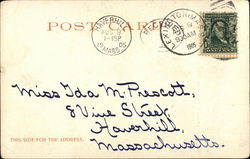 POSTCARD
HAVERHILL
1-15P
1905
MASS.
9
930AM
1905
Miss Ida M. Prescott,
8 Vine Street
Haverhill,
Massachusetts.
THIS SIDE FOR THE ADDRESS.